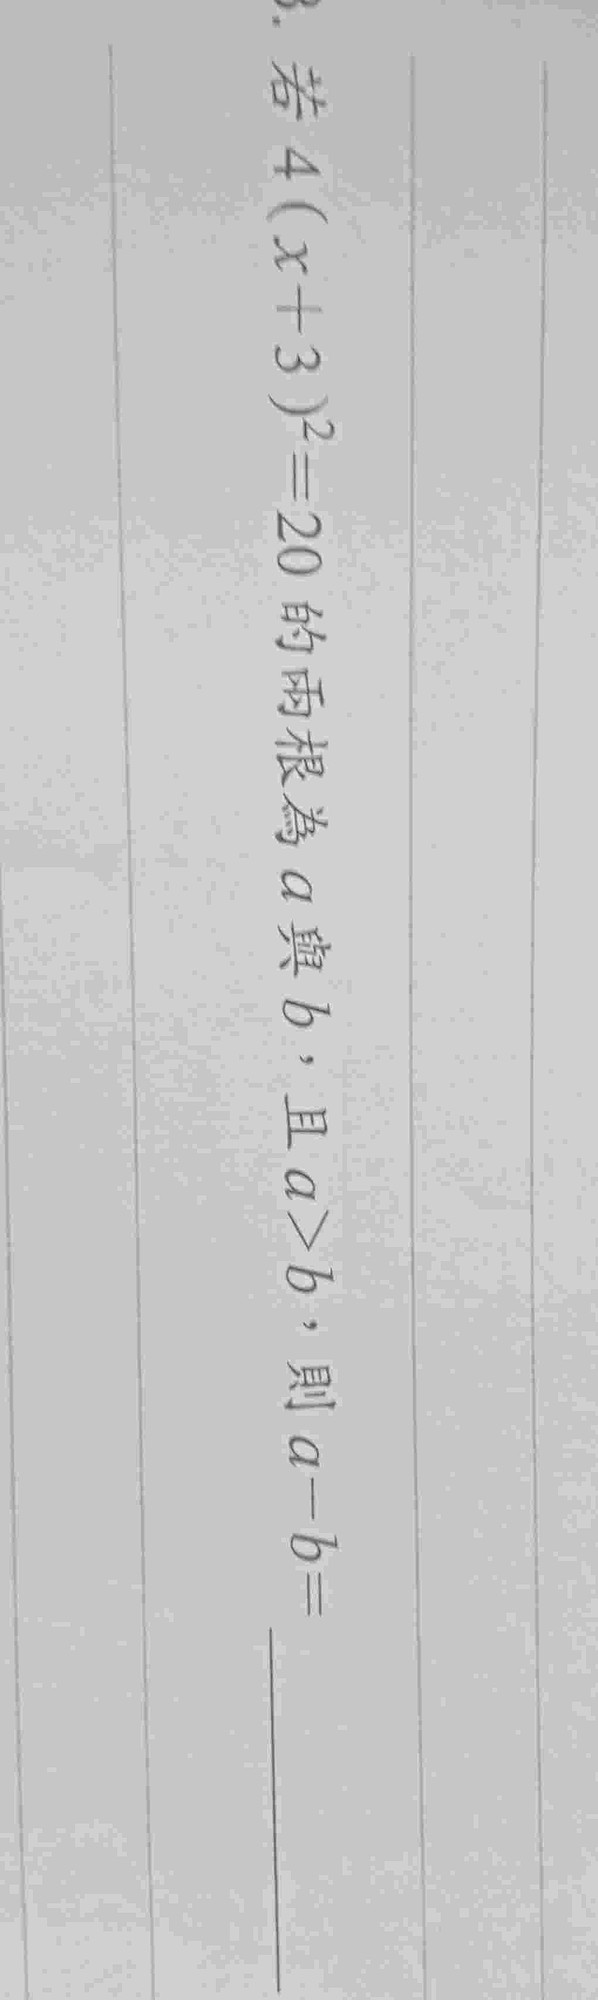 3. 若 4(x+3)²=20 的兩根為 a 與 b，且 a>b，則 a−b=